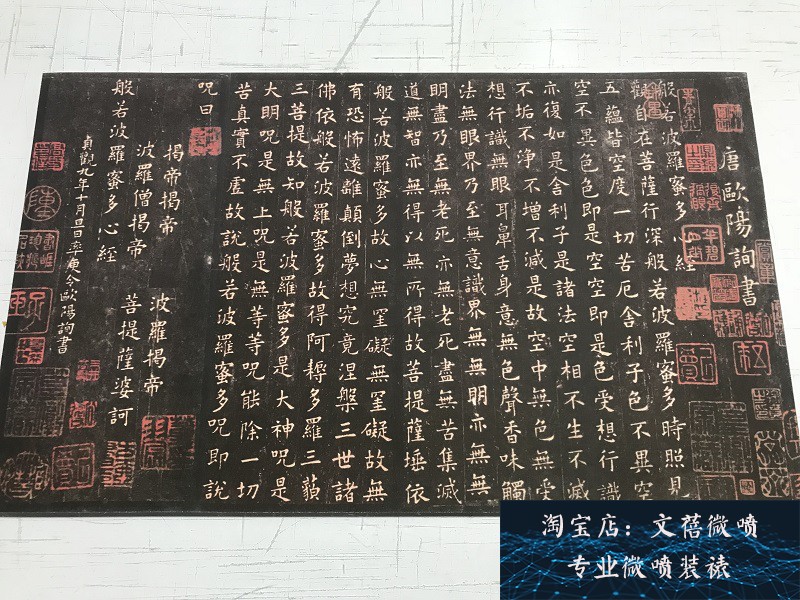 唐歐陽詢書
般若波羅蜜多心經
觀自在菩薩行深般若波羅蜜多時照見
五蘊皆空度一切苦厄舍利子色不異空
空不異色色即是空空即是色受想行識
亦復如是舍利子是諸法空相不生不滅
不垢不淨不增不減是故空中無色無受
想行識無眼耳鼻舌身意無色聲香味觸
法無眼界乃至無意識界無無明亦無無
明盡乃至無老死亦無老死盡無苦集滅
道無智亦無得以無所得故菩提薩埵依
般若波羅蜜多故心無罣礙無罣礙故無
有恐怖遠離顛倒夢想究竟涅槃三世諸
佛依般若波羅蜜多故得阿耨多羅三藐
三菩提故知般若波羅蜜多是大神呪是
大明呪是無上呪是無等等呪能除一切
苦真實不虛故說般若波羅蜜多呪即說
呪曰
揭帝揭帝 波羅揭帝
波羅僧揭帝 菩提薩婆訶
般若波羅蜜多心經
貞觀九年十月旦日率更令歐陽詢書
淘宝店：文蓓微喷
专业微喷装裱